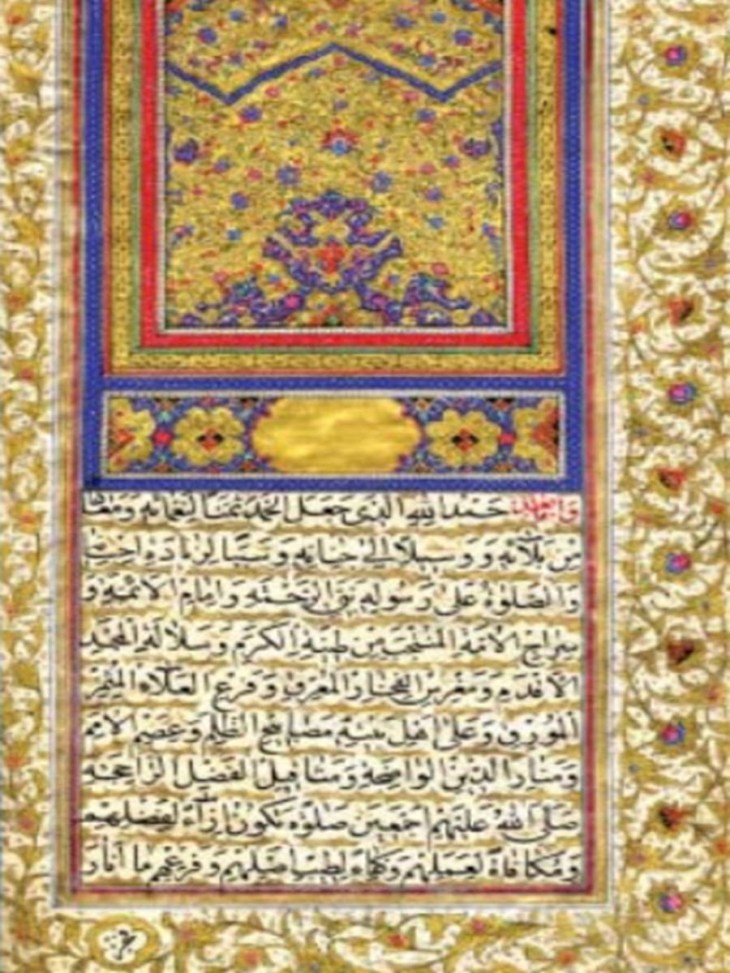 اما بعد حمدا لله الذي جعل الحمد ثمنا لنعمائه ومعاذا
من بلائه و وسيلا الى جنانه وسببا لزيادة
والصلوة على رسوله نبي الرحمة وامام الائمة و
سراج الامة المنتخب من طينة الكرم وسلالة المجد
الاقدم ومغرس الفخار المعرق وفرع العلاء المثمر
المورق وعلى اهل بيته مصابيح الظلم وعصم الامم
ومنار الدين الواضحة ومثاقيل الفضل الراجحة
صلى الله عليهم اجمعين صلوة تكون ازاء لفضلهم
ومكافاة لعملهم وكفاء لطيب اصلهم وفرعهم ما انار